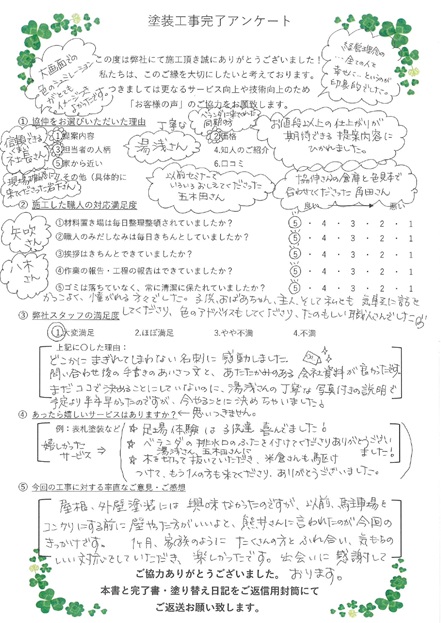 塗装工事完了アンケート
この度は弊社にて施工頂き誠にありがとうございました!
私たちは、このご縁を大切にしたいと考えております。
つきましては更なるサービス向上や技術向上のため
「お客様の声」のご協力をお願致します。
大画面での
色のシュミレーション
がとても
イメージ
よかったです。
経営理念の
全ての人を
幸せに…というのが
印象的でした。
①協伸をお選びいただいた理由
1.提案内容
2.価格
3.担当者の人柄
4.知人のご紹介
5.家から近い
6.口コミ
7.その他(具体的に
信頼できる
丁寧な
湯浅さん
お値段以上の仕上がりが
期待できる提案内容に
ひかれました。
現場
来てくださった若下さん
以前セミナーで
いろいろおしえてくださった
五木田さん
協伸さんの倉庫と色見本で
合わせてくださった角田さん
②施工した職人の対応満足度
良い
悪い
矢吹
さん
八木
さん
①材料置き場は毎日整理整頓されていましたか?
⑤ ・ 4 ・ 3 ・ 2 ・ 1
②職人のみだしなみは毎日きちんとしていましたか?
⑤ ・ 4 ・ 3 ・ 2 ・ 1
③挨拶はきちんとできていましたか?
⑤ ・ 4 ・ 3 ・ 2 ・ 1
④作業の報告・工程の報告はできていましたか?
⑤ ・ 4 ・ 3 ・ 2 ・ 1
⑤ゴミは落ちていなく、常に清潔に保たれていましたか?
⑤ ・ 4 ・ 3 ・ 2 ・ 1
かっこよく、憧れる方々でした。子供、おばあちゃん、主人、そして私にも気軽に話を
してくださり、色のアドバイスもしてくださり、たのもしい職人さんでした
③弊社スタッフの満足度
①大変満足
2.ほぼ満足
3.やや不満
4.不満
上記に〇した理由:
どこかにまぎれてしまわない名刺に感動しました。
問い合わせ後の手書きのあいさつ文と、あたたかみのある会社資料が
まだココで決めることにしていないのに、湯浅さんの丁寧な写真付きの説明で
予定より半年早かったのですが、今やることに決めちゃいました!
④あったら嬉しいサービスはありますか?
思いつきません。
例:表札塗装など
嬉しかった
サービス
☆ 足場体験は子供達喜んでました!
☆ ベランダの排水口のふたを付けてくださりありがとうござい
ました!
湯浅さん、五木田さんに
☆ 木を切って抜いていただき、米倉さんも駆け
つけて、もう1人の方も来てくださり、ありがとうございました。
⑤今回の工事に対する率直なご意見・ご感想
屋根、外壁塗装には興味なかったのですが、以前、駐車場を
コンクリにする前に壁やった方がいいよと、熊井さんに言われたのが今回の
きっかけです。 1ヶ月、家族のようにたくさんの方とふれ合い、気もちの
いい対応をしていただき、楽しかったです。出会いに感謝して
おります。
ご協力ありがとうございました。
本書と完了書・塗り替え日記をご返信用封筒にて
ご返送お願い致します。